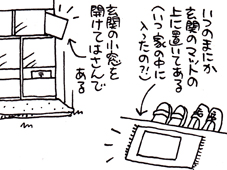 いつのまにか
玄関のマットの
上に置いてある
(いつ家の中に
入ったの?!)
玄関の小窓を
開けてはさんで
ある